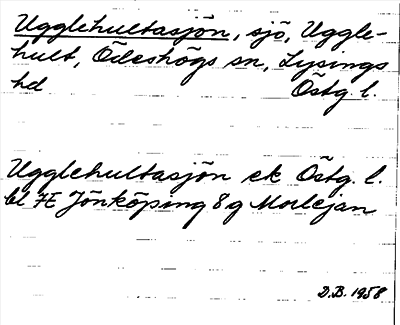 Ugglehultasjön, sjö, Uggle-
hult, Ödeshögs sn, Lysings
hd Östg l.
Ugglehultasjön ek Östg. l.
bl 7E Jönköping 8g Morlejan
D.B. 1958